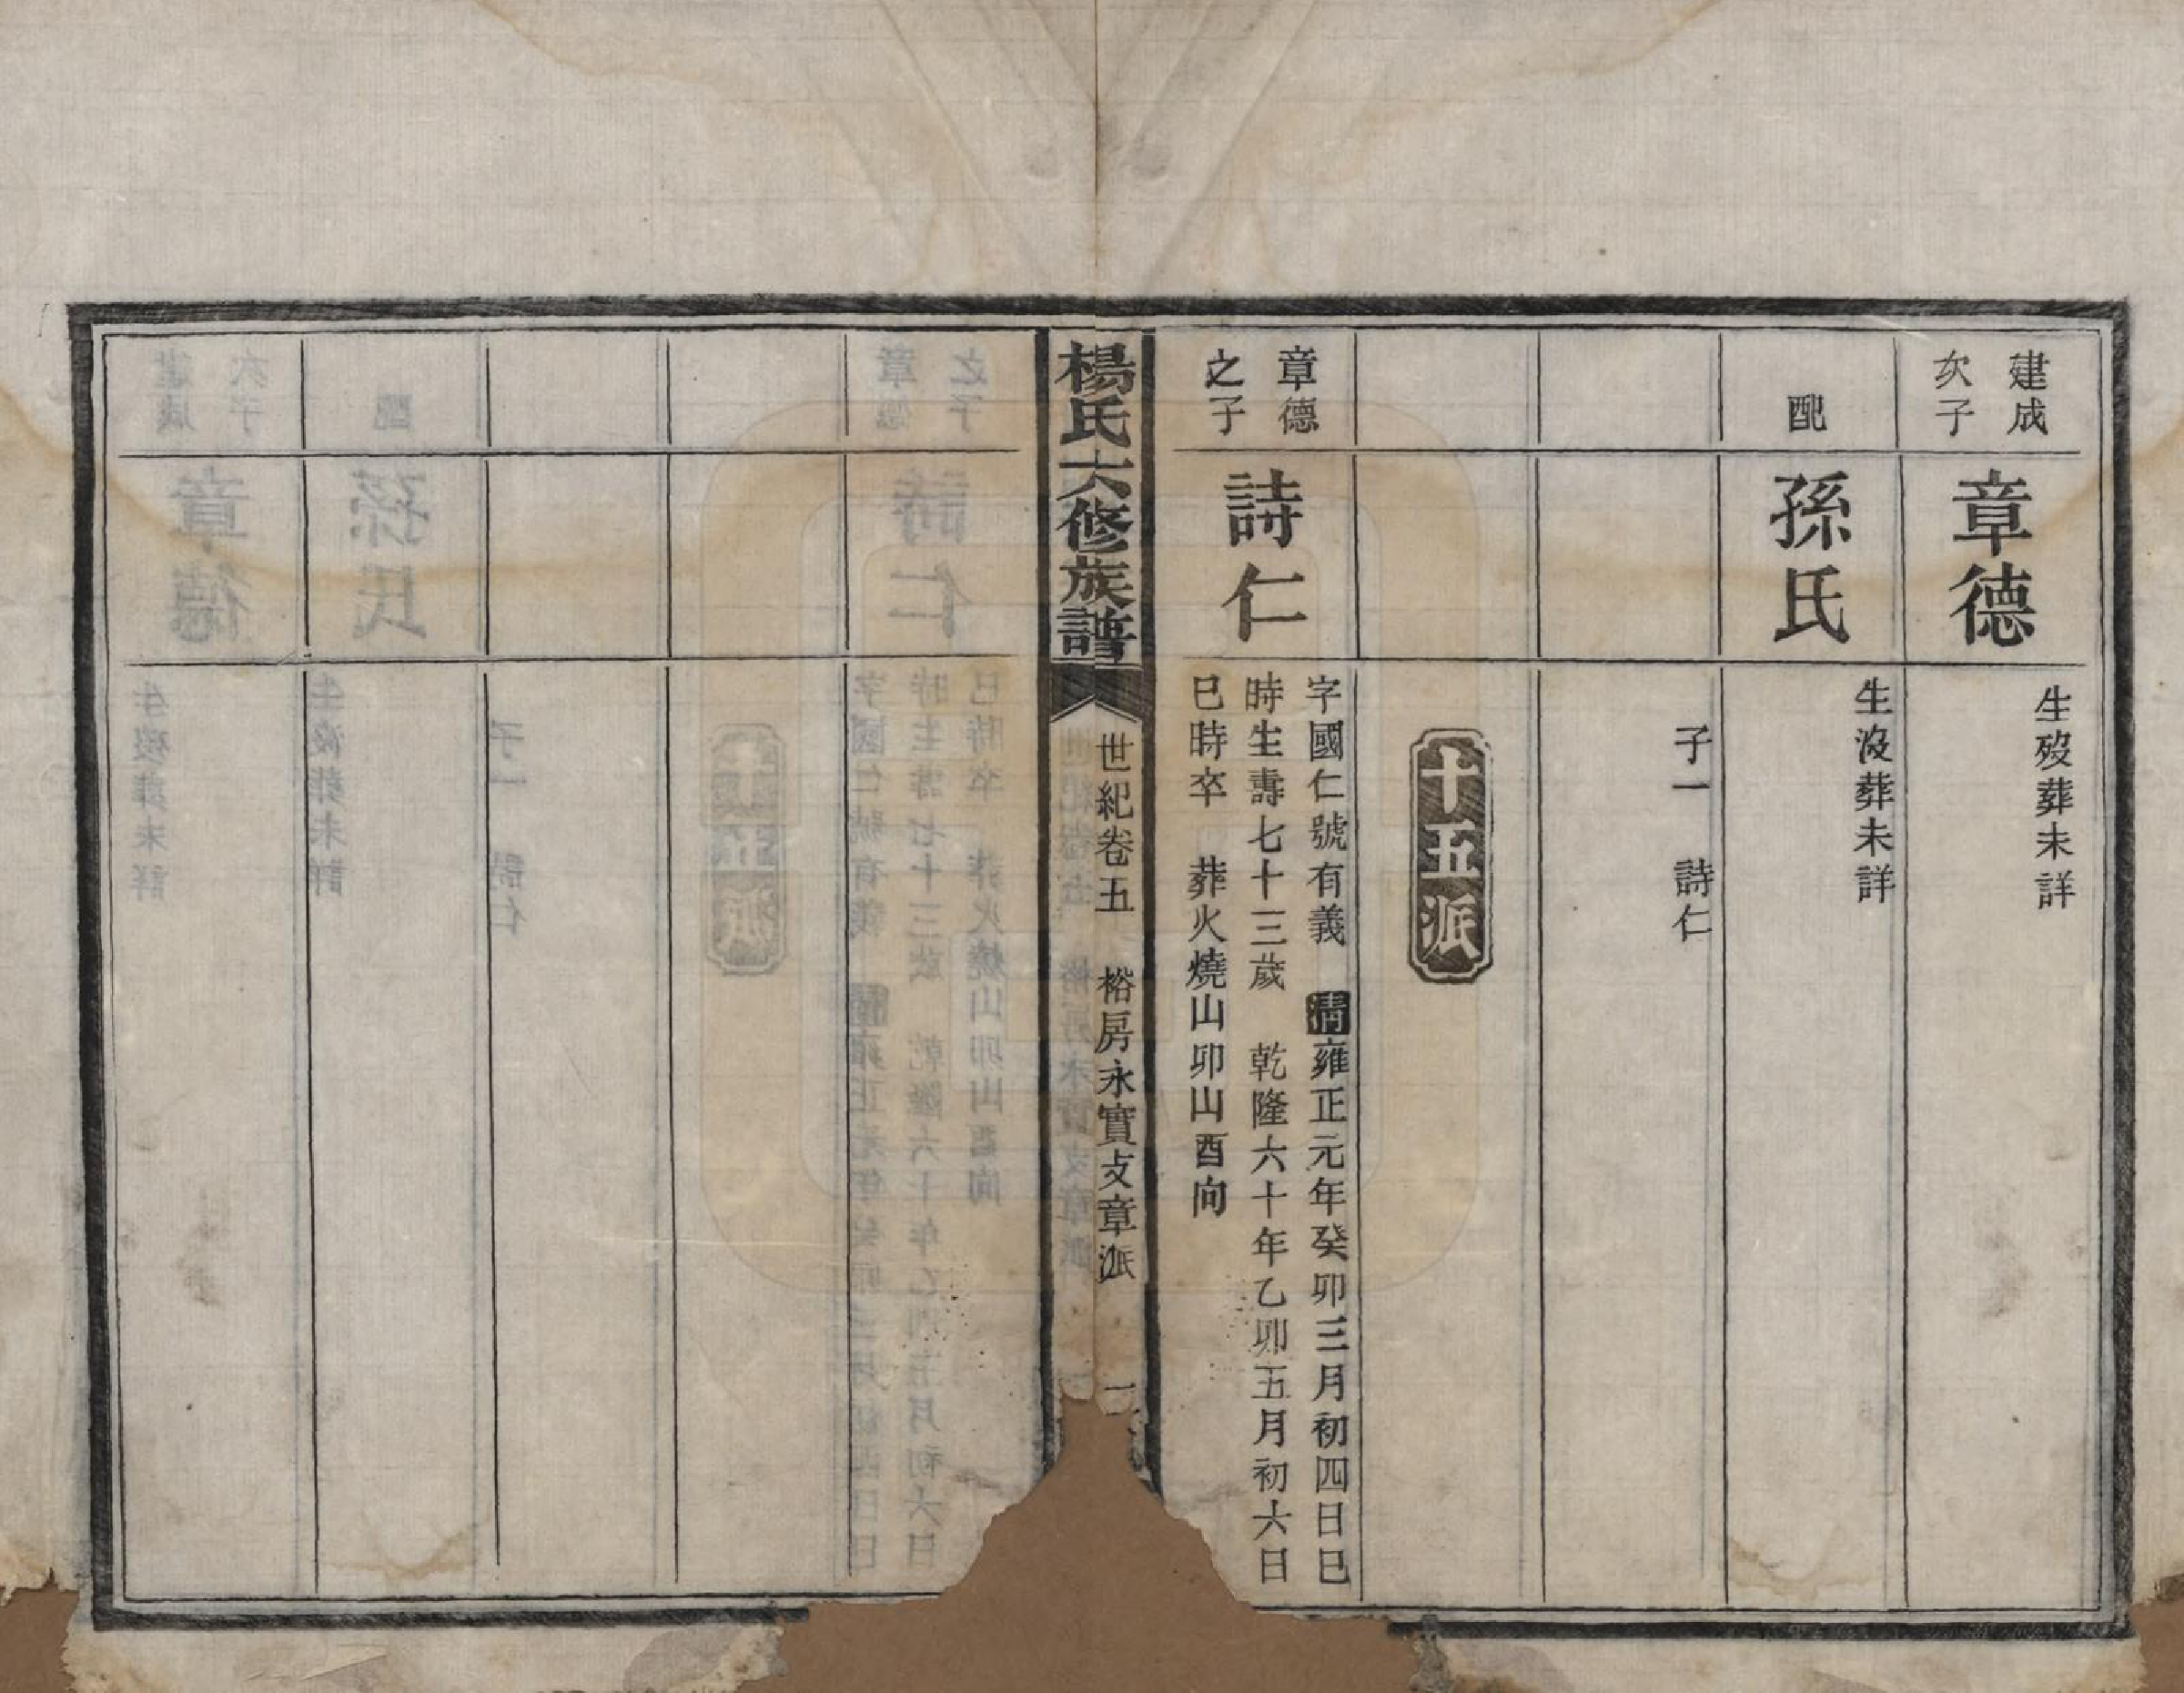 建成
次子
章德
生歿葬未詳
配
孫氏
生没葬未詳
子一　詩仁
十五派
章德
之子
詩仁
字國仁號有義　清雍正元年癸卯三月初四日巳
時生壽七十三歲　乾隆六十年乙卯五月初六日
巳時卒　葬火燒山卯山酉向
楊氏六修族譜
世紀卷五　裕房永實支章派